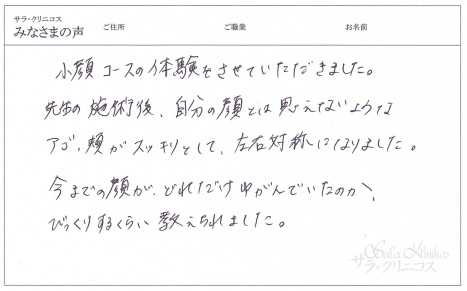 サラ・クリニコス
みなさまの声 ご住所 ご職業 お名前
小顔コースの体験をさせていただきました。
先生の施術後、自分の顔とは思えないような
アゴ、頬がスッキリとして、左右対称になりました。
今までの顔が、どれだけゆがんでいたのか、
びっくりするくらい教えられました。
Sala Klinikos
サラ・クリニコス